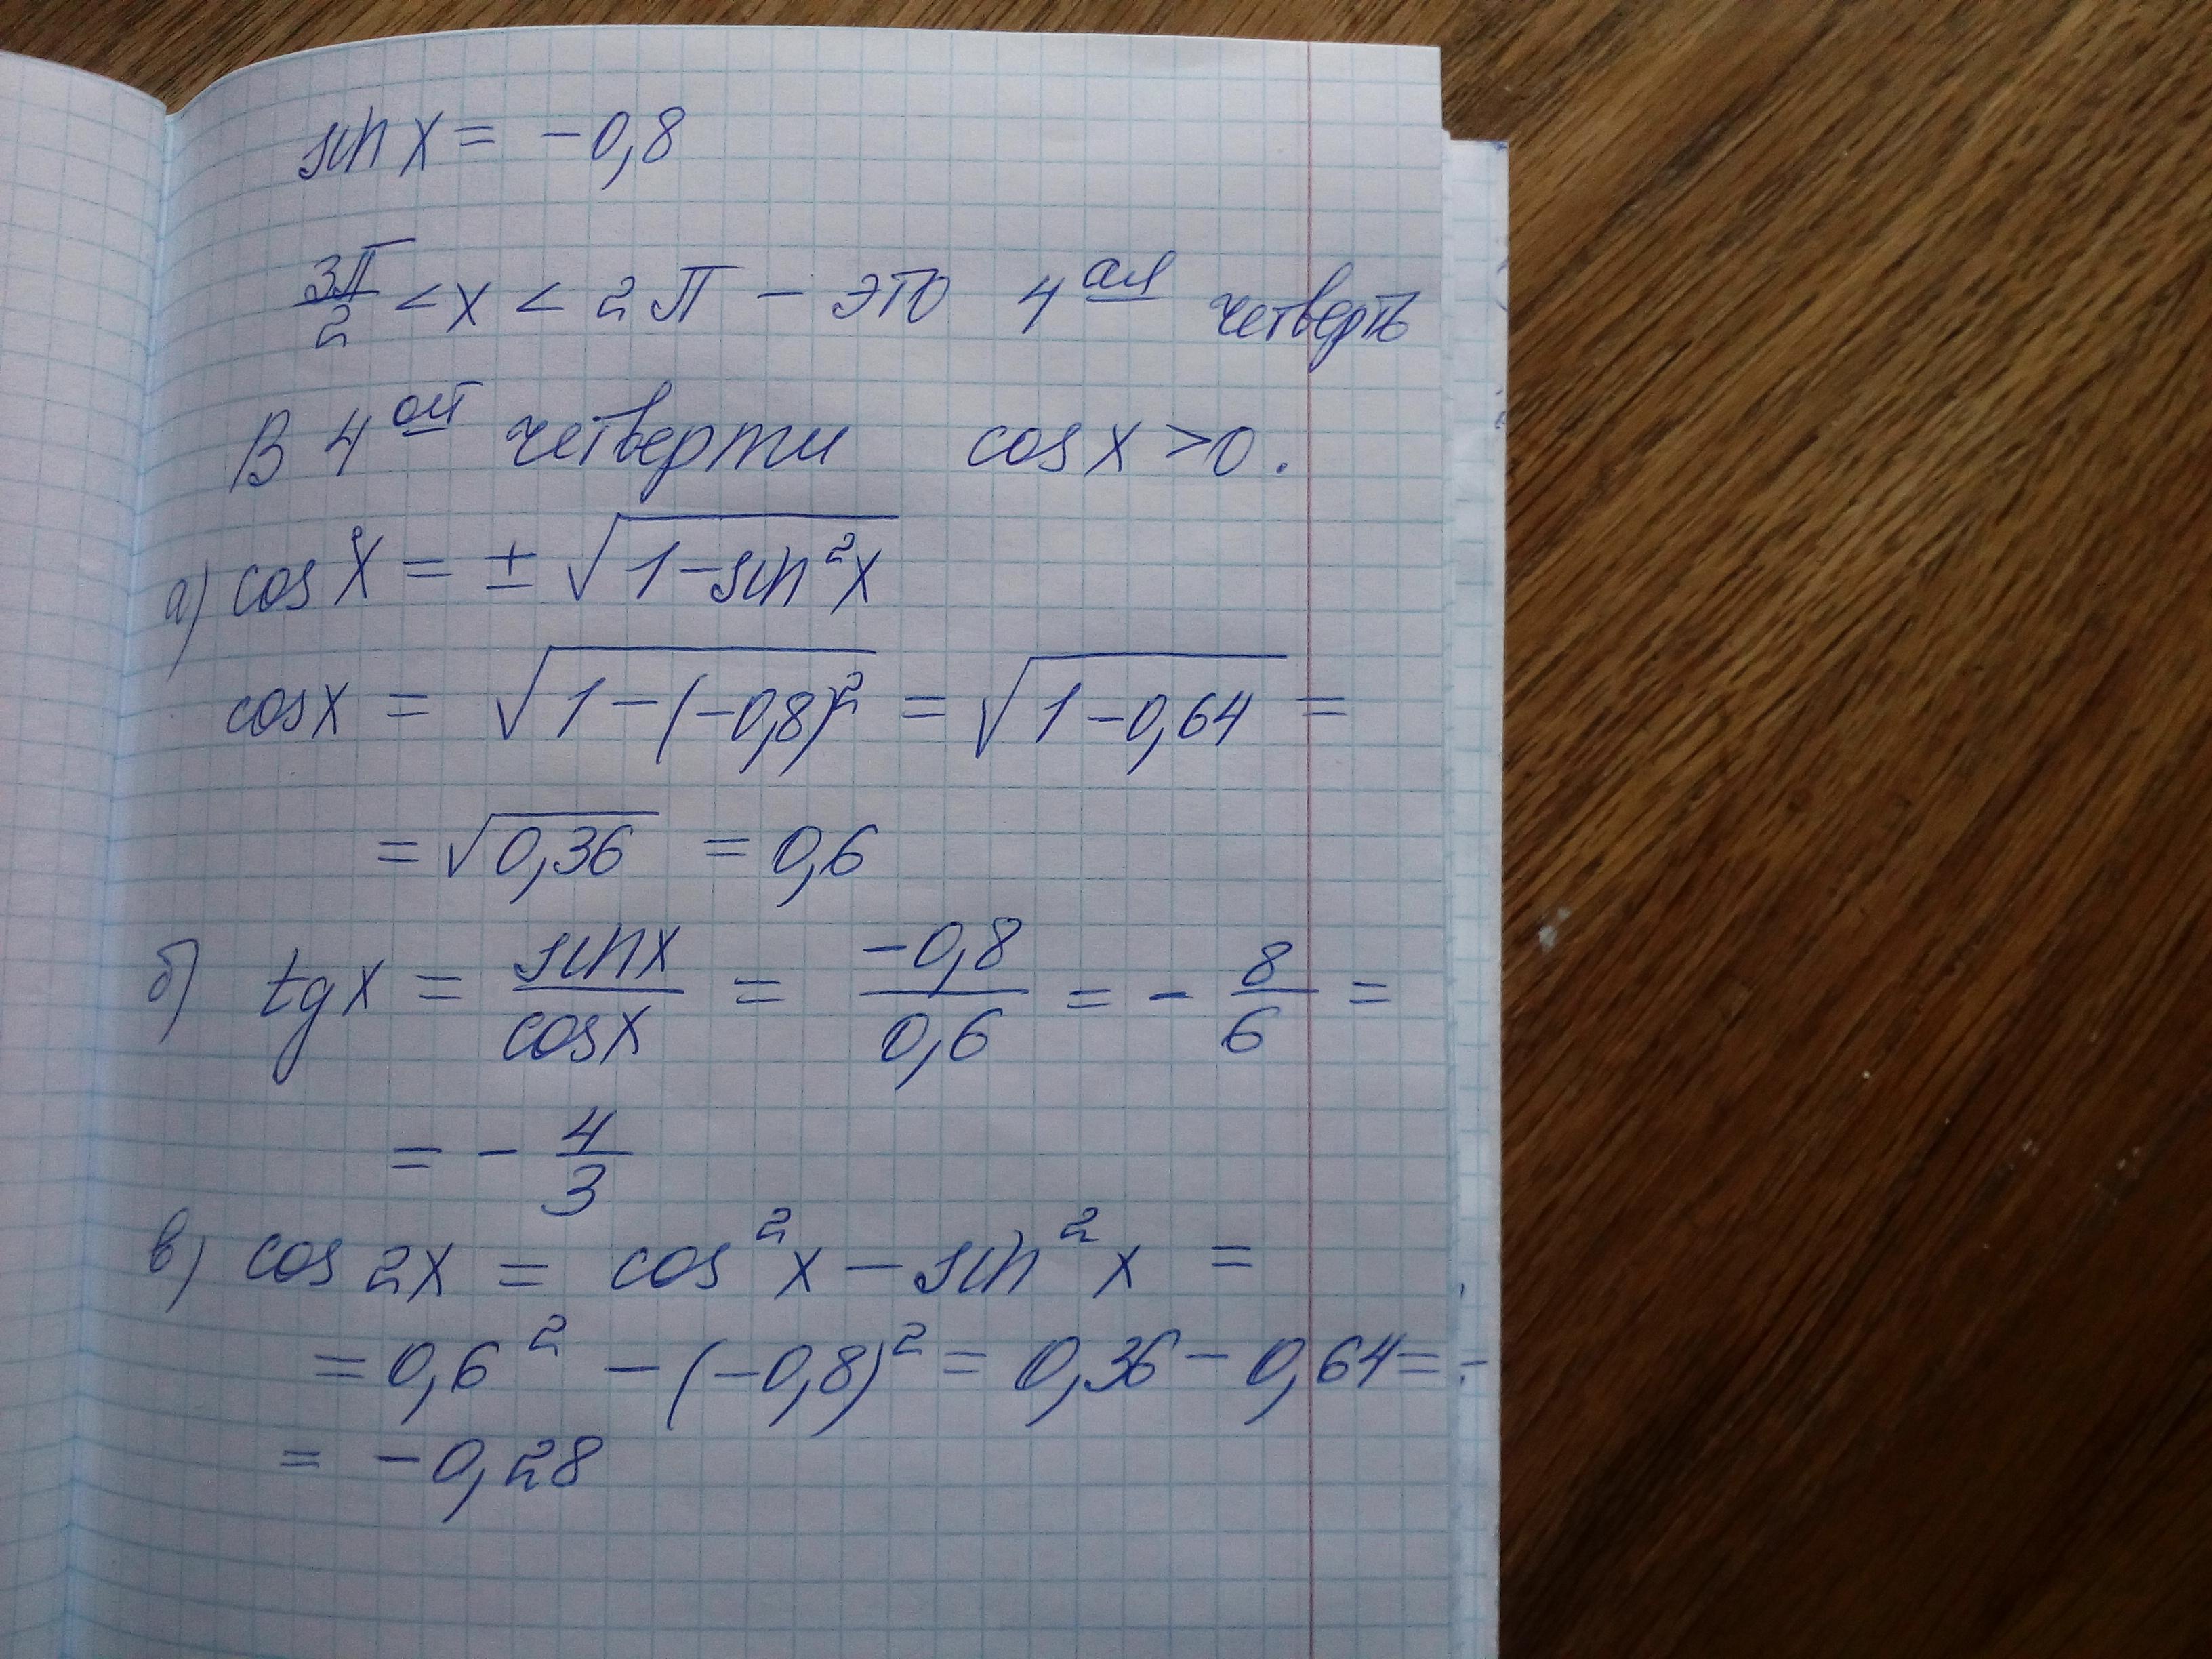 sin x = -0,8
3π/2 < x < 2π - это 4ая четверть
В 4ой четверти cos x > 0.
а) cos x = ± √(1-sin²x)
cos x = √(1-(-0,8)²) = √(1-0,64) =
= √0,36 = 0,6
б) tg x = sin x/cos x = -0,8/0,6 = - 8/6 =
= - 4/3
в) cos 2x = cos²x - sin²x =
= 0,6² - (-0,8)² = 0,36 - 0,64 =
= -0,28